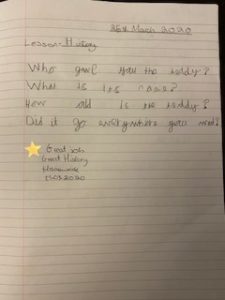 26th March 2020
Lesson - History
Who gave you the teddy?
What is its name?
How old is the teddy?
Did it go everywhere you
Great job
Great History
Homework
2020